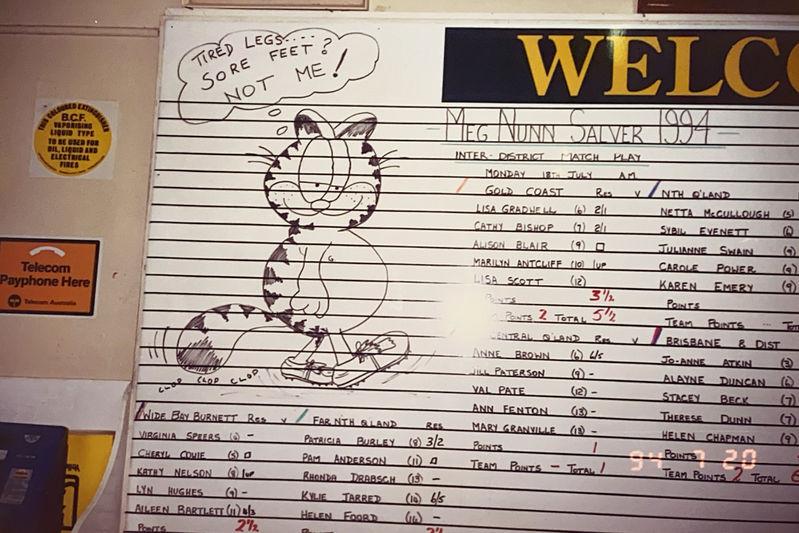 TIRED LEGS....
SORE FEET?
NOT ME!
WELCO
MEG NUNN SALVER 1994
INTER-DISTRICT MATCH PLAY
MONDAY 18TH JULY AM
GOLD COAST RES V NTH Q'LAND
LISA GRADWELL (6) 2/1 NETTA MCCULLOUGH (5)
CATHY BISHOP (7) 2/1 SYBIL EVENETT (6)
ALISON BLAIR (9) □ JULIANNE SWAIN (9)
MARILYN ANTCLIFF (10) 1UP CAROLE POWER (9)
LISA SCOTT (12) KAREN EMERY (9)
POINTS 3½ POINTS
POINTS 2 TOTAL 5½ TEAM POINTS
CENTRAL Q'LAND RES V BRISBANE & DIST
ANNE BROWN (6) 6/5 JO-ANNE ATKIN (3)
JILL PATERSON (9) - ALAYNE DUNCAN (6)
VAL PATE (12) - STACEY BECK (7)
ANN FENTON (13) - THERESE DUNN (7)
MARY GRANVILLE (13) - HELEN CHAPMAN (9)
POINTS 1 POINTS
TEAM POINTS - TOTAL 1 TEAM POINTS 2 TOTAL
CLOP CLOP CLOP
WIDE BAY BURNETT RES V FAR NTH QLAND RES
VIRGINIA SPEERS (6) - PATRICIA BURLEY (8) 3/2
CHERYL COVIE (5) □ PAM ANDERSON (11) □
KATHY NELSON (8) 1UP RHONDA DRABSCH (13) -
LYN HUGHES (9) - KYLIE TARRED (14) 6/5
AILEEN BARTLETT (11) 4/3 HELEN FOORD (14) -
POINTS 2½ POINTS
THIS COLOURED EXTINGUISHER
B.C.F.
VAPORISING
LIQUID TYPE
TO BE USED FOR
OIL, LIQUID AND
ELECTRICAL
FIRES
Telecom
Payphone Here
Telecom Australia
94 7 20